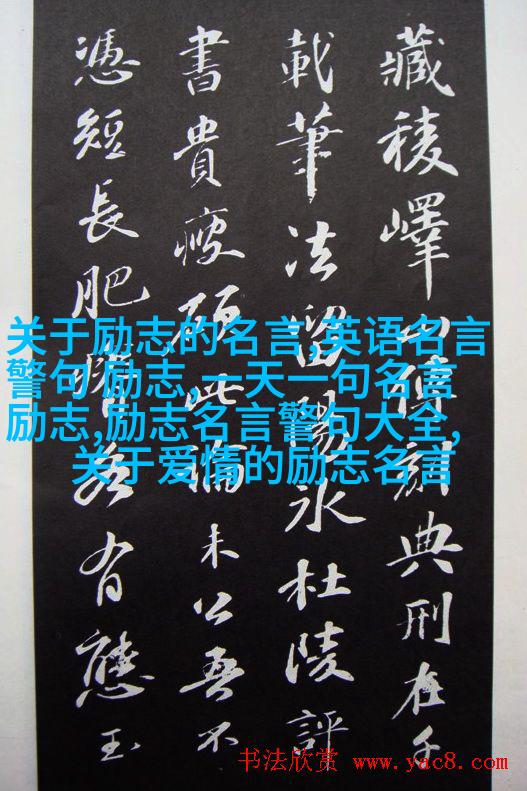 藏稜嶧山傳刻典刑在千
載筆法留陽冰杜陵評
書貴瘦硬此論未公吾不
憑短長肥各有態玉
关于励志的名言,英语名言
警句 励志,一天一句名言
励志,励志名言警句大全,
关于爱情的励志名言
书法欣赏 www.yac8.com